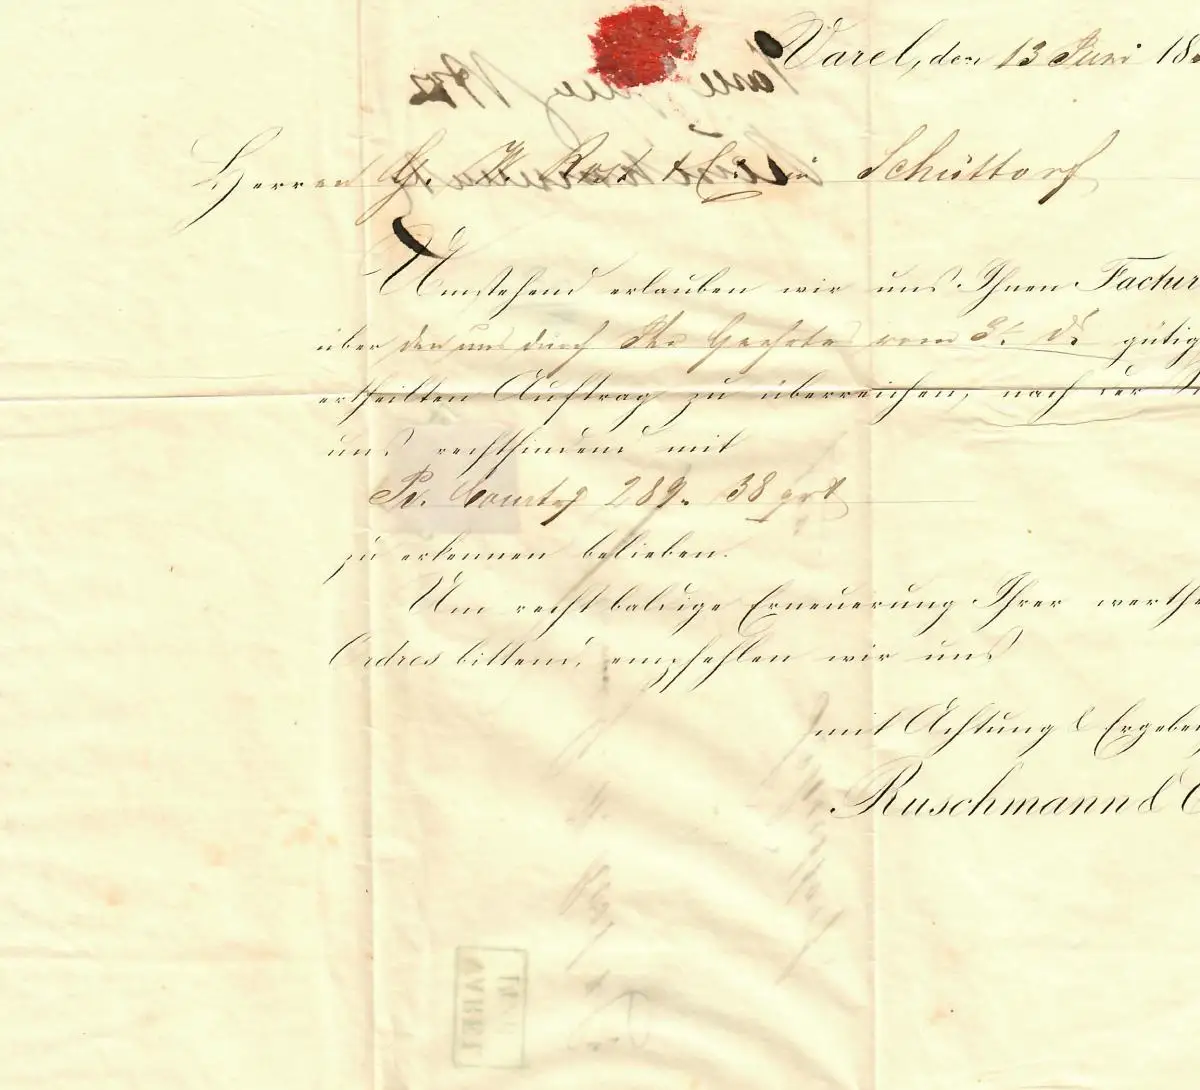 Varel, den 13 Juni 18
Herren G. W. Rost & C. in Schüttorf
Umstehend erlauben wir uns Ihnen Factur
über den uns durch Ihr Geehrtes vom 3t. ds gütig
ertheilten Auftrag zu überreichen, nach der
uns rechtfindend mit
Pr. Courtg 289. 38 grt
zu erkennen belieben.
Um recht baldige Erneuerung Ihrer werthe
Ordres bittend, empfehlen wir uns
mit Achtung & Ergeben
Ruschmann & C
VAREL